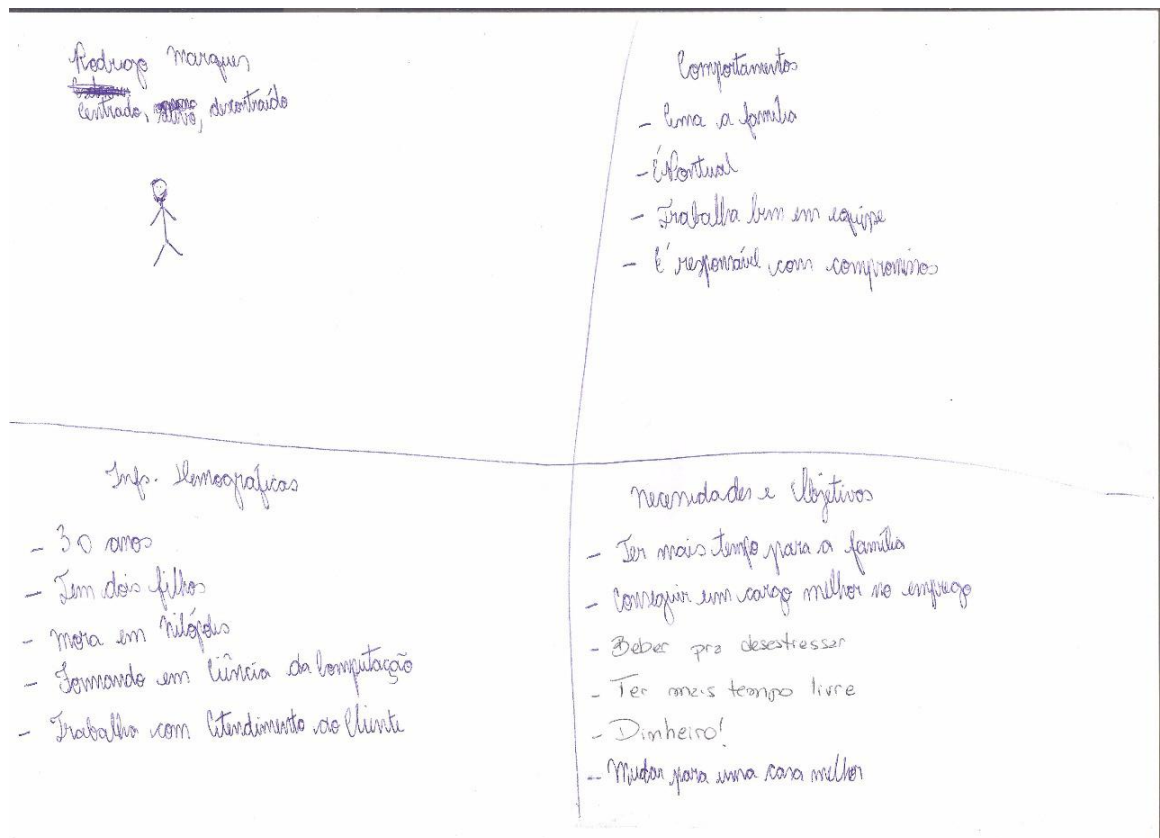 Rodrigo Marques
Centrado, descontraído
Comportamentos
- Ama a família
- É Pontual
- Trabalha bem em equipe
- É responsável com compromissos
Info. Demográficas
- 30 anos
- Tem dois filhos
- Mora em Nilópolis
- Formando em Ciência da Computação
- Trabalha com Atendimento ao Cliente
Necessidades e Objetivos
- Ter mais tempo para a família
- Conseguir um cargo melhor no emprego
- Beber pra desestressar
- Ter mais tempo livre
- Dinheiro!
- Mudar para uma casa melhor